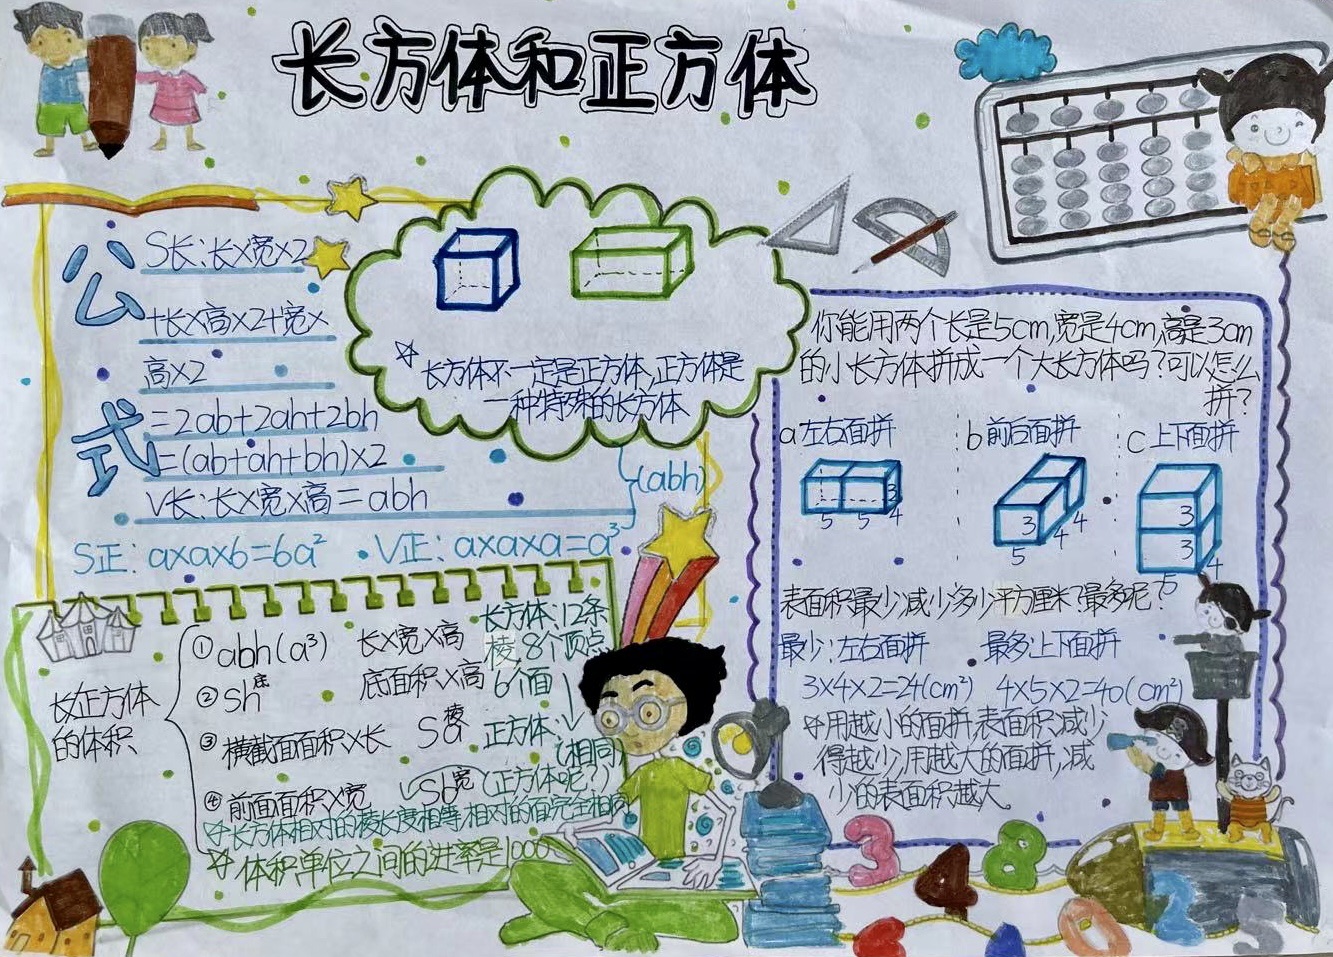 长方体和正方体
公式
S长:长×宽×2
+长×高×2+宽×
高×2
=2ab+2ah+2bh
=(ab+ah+bh)×2
V长:长×宽×高=abh
(abh)
S正:a×a×6=6a² ·V正:a×a×a=a³
☆长方体不一定是正方体,正方体是
一种特殊的长方体
你能用两个长是5cm,宽是4cm,高是3cm
的小长方体拼成一个大长方体吗?可以怎么
拼?
a左右面拼 b前后面拼 c上下面拼
3 5 5 4
3 4 4 5
3 3 4 5
表面积最少减少多少平方厘米?最多呢?
最少:左右面拼 最多:上下面拼
3×4×2=24(cm²) 4×5×2=40(cm²)
☆用越小的面拼,表面积减少
得越少,用越大的面拼,减
少的表面积越大。
长正方体
的体积
①abh(a³) 长×宽×高
②sh底 底面积×高
③横截面面积×长 Sa棱
④前面面积×宽 Sb宽
长方体:12条
棱 8个顶点
6个面
正方体:
(相同)
(正方体呢?)
☆长方体相对的棱长度相等,相对的面完全相同
☆体积单位之间的进率是1000
3 4 8 0 2 5